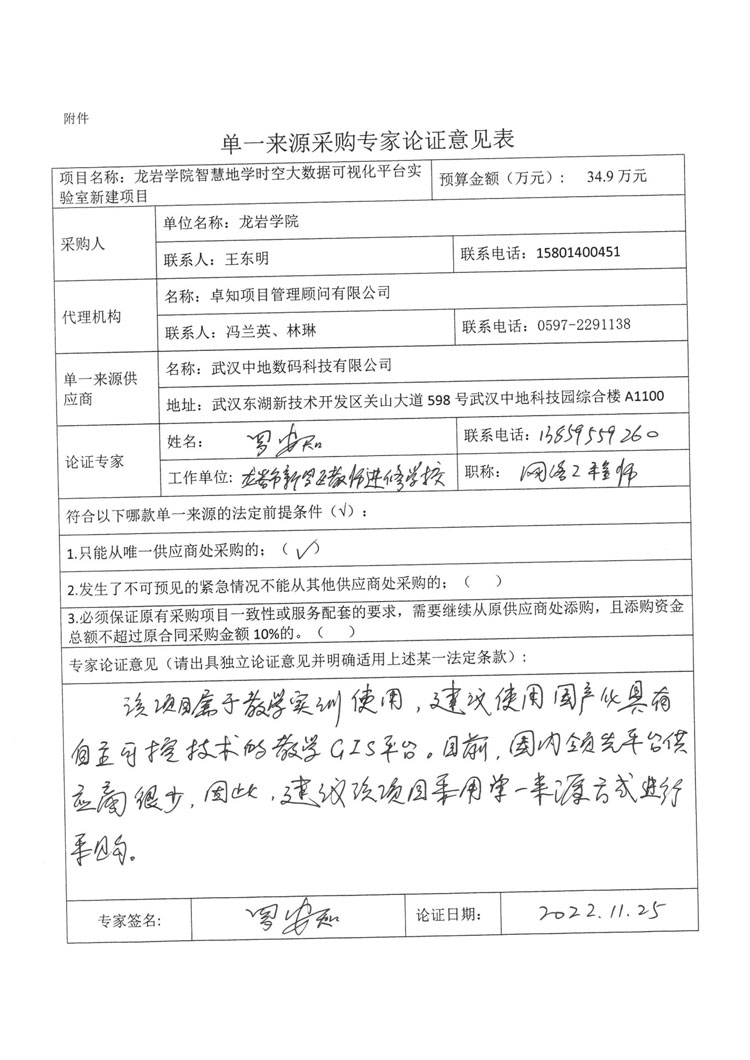 附件
单一来源采购专家论证意见表
项目名称：龙岩学院智慧地学时空大数据可视化平台实
验室新建项目
预算金额（万元）： 34.9 万元
采购人
单位名称：龙岩学院
联系人：王东明
联系电话：15801400451
代理机构
名称：卓知项目管理顾问有限公司
联系人：冯兰英、林琳
联系电话：0597-2291138
单一来源供
应商
名称：武汉中地数码科技有限公司
地址：武汉东湖新技术开发区关山大道 598 号武汉中地科技园综合楼 A1100
论证专家
姓名：
联系电话：13859559260
工作单位：龙岩市新罗区教师进修学校
职称： 网络工程师
符合以下哪款单一来源的法定前提条件（√）：
1.只能从唯一供应商处采购的；（ √ ）
2.发生了不可预见的紧急情况不能从其他供应商处采购的；（ ）
3.必须保证原有采购项目一致性或服务配套的要求，需要继续从原供应商处添购，且添购资金
总额不超过原合同采购金额 10%的。（ ）
专家论证意见（请出具独立论证意见并明确适用上述某一法定条款）：
该项目属于教学实训使用，建议使用国产化具有
自主可控技术的教学GIS平台。目前，国内领先平台供
应商很少，因此，建议该项目采用单一来源方式进行
采购。
专家签名：
论证日期：
2022.11.25